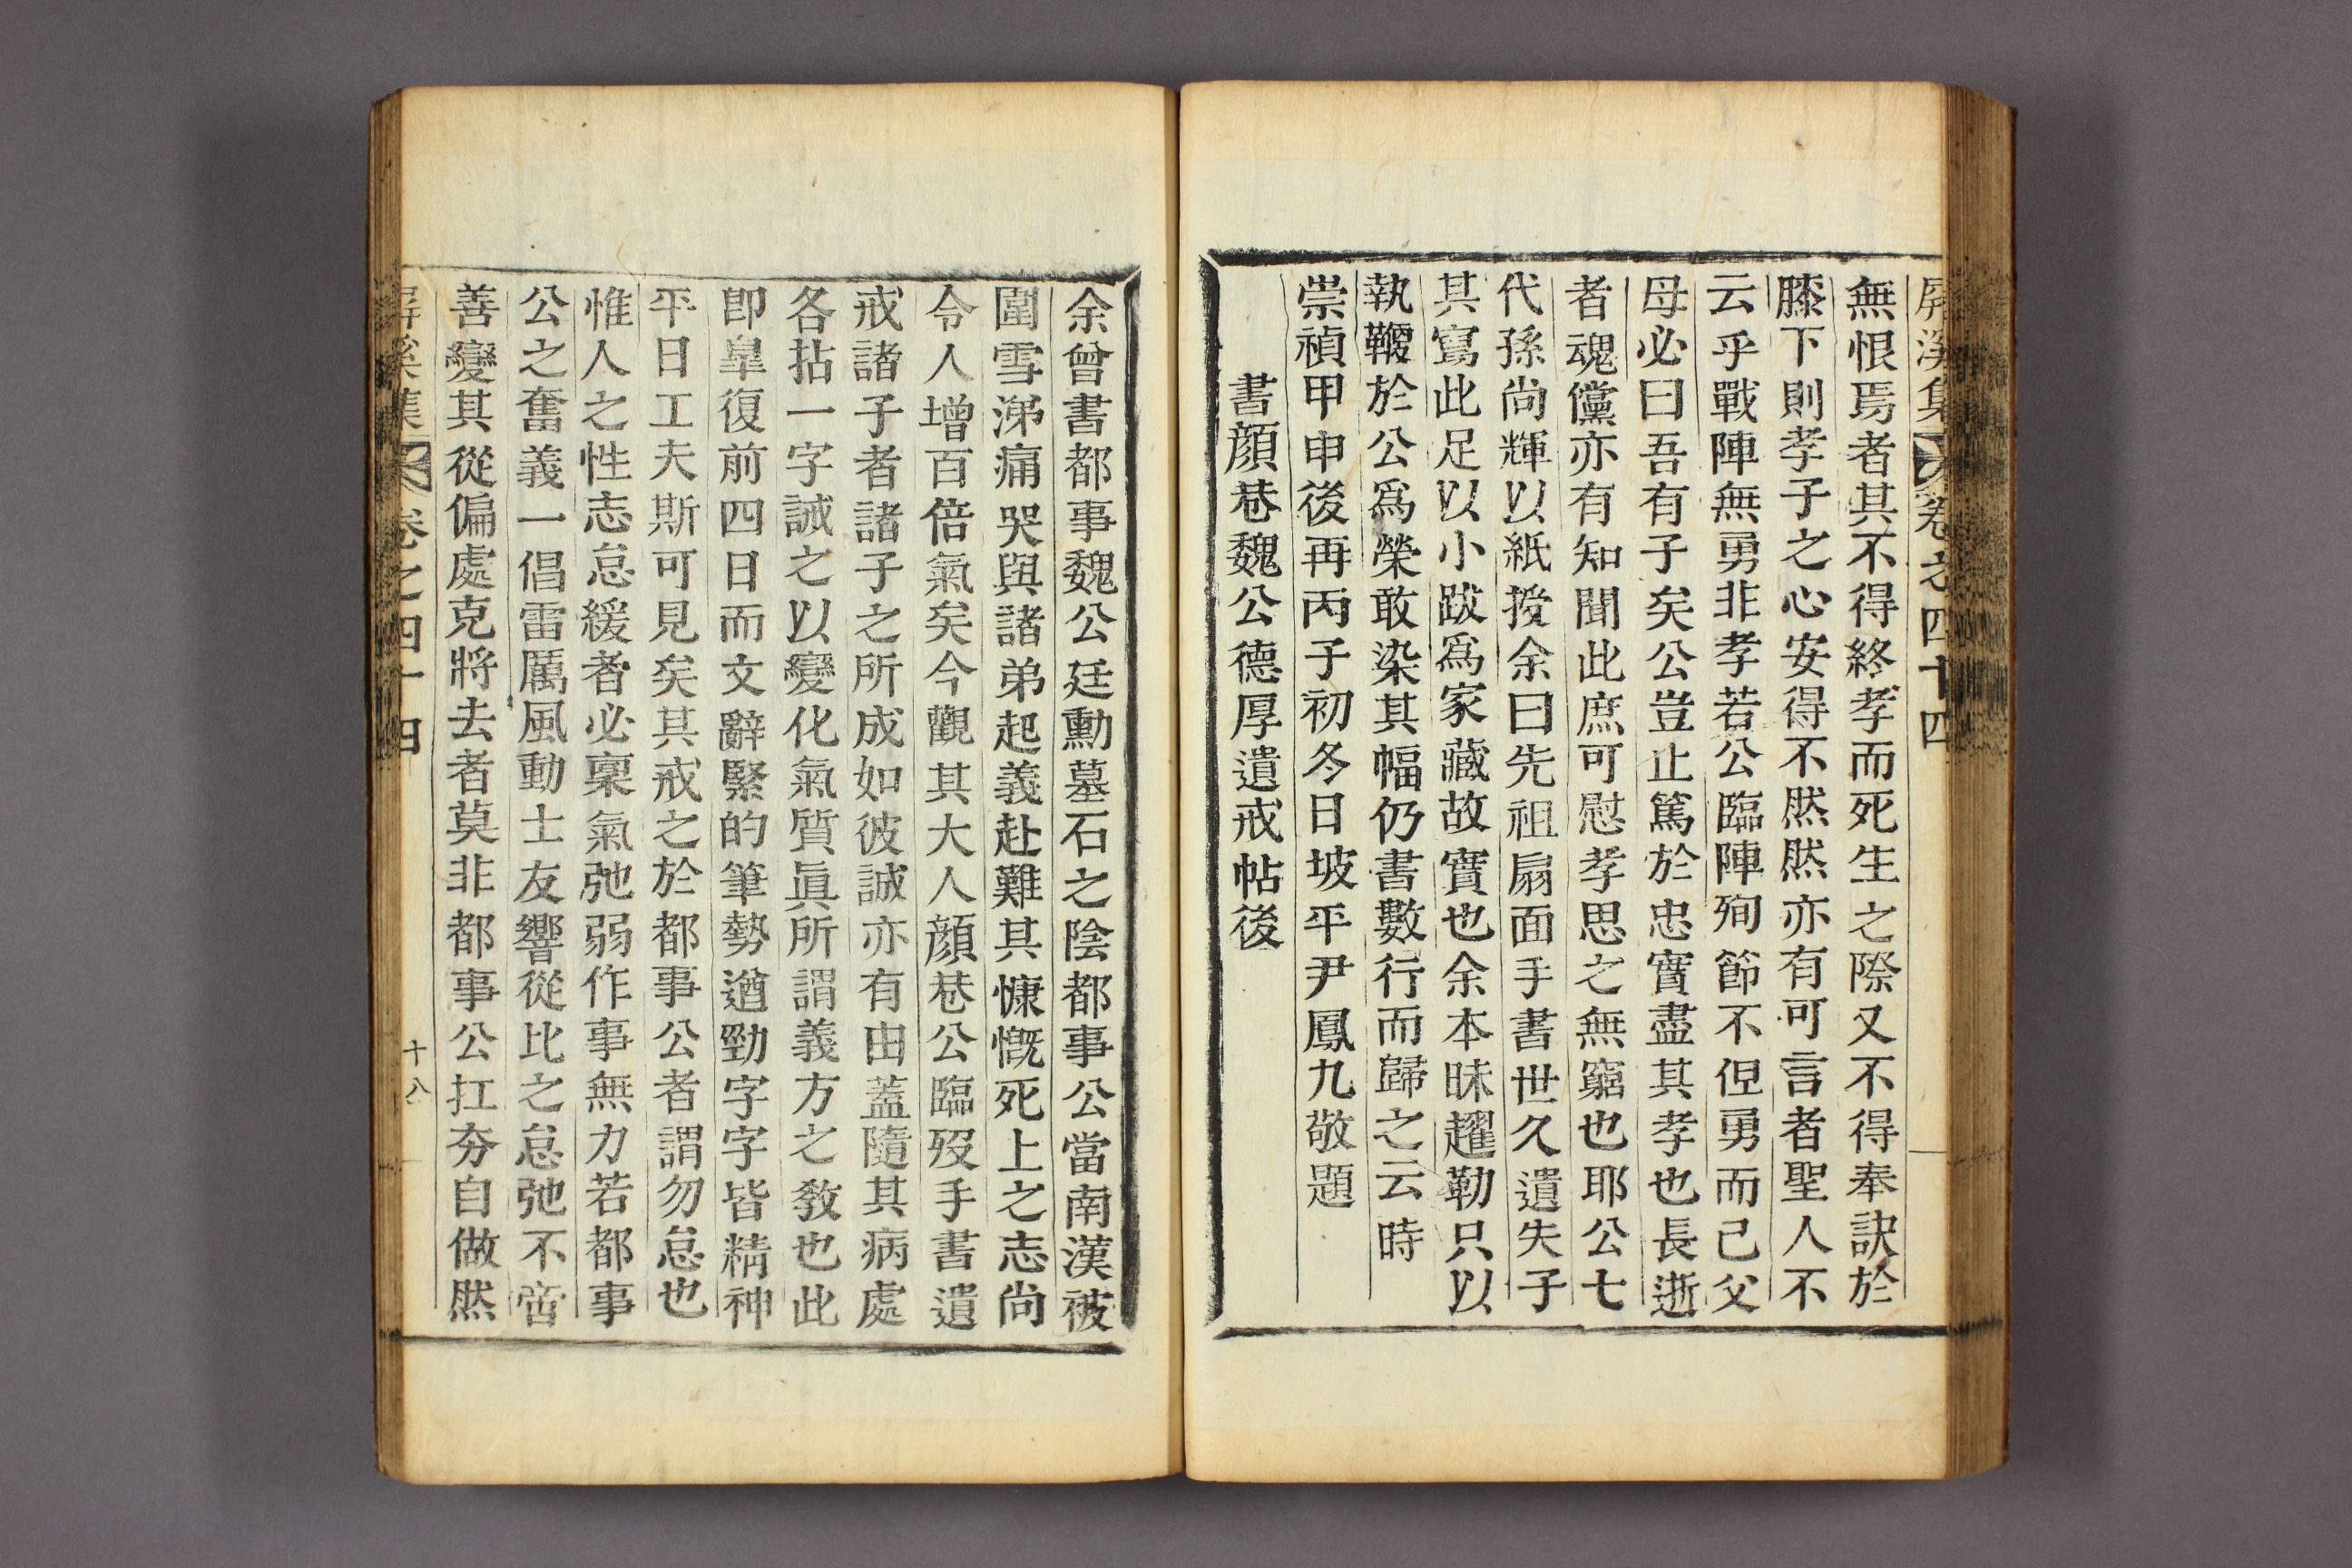 屛溪集 卷之四十四
無恨焉者其不得終孝而死生之際又不得奉訣於
膝下則孝子之心安得不然然亦有可言者聖人不
云乎戰陣無勇非孝若公臨陣殉節不但勇而己父
母必曰吾有子矣公豈止篤於忠實盡其孝也長逝
者魂儻亦有知聞此庶可慰孝思之無窮也耶公七
代孫尙輝以紙授余曰先祖扇面手書世久遺失子
其寫此足以小跋爲家藏故寶也余本昧趯勒只以
執鞭於公爲榮敢染其幅仍書數行而歸之云時
崇禎甲申後再丙子初冬日坡平尹鳳九敬題
書顔巷魏公德厚遺戒帖後
余曾書都事魏公廷勳墓石之陰都事公當南漢被
圍雪涕痛哭與諸弟起義赴難其慷慨死上之志尙
令人增百倍氣矣今觀其大人顔巷公臨歿手書遺
戒諸子者諸子之所成如彼誠亦有由蓋隨其病處
各拈一字誡之以變化氣質眞所謂義方之敎也此
卽皐復前四日而文辭緊的筆勢遒勁字字皆精神
平日工夫斯可見矣其戒之於都事公者謂勿怠也
惟人之性志怠緩者必稟氣弛弱作事無力若都事
公之奮義一倡雷厲風動士友響從比之怠弛不啻
善變其從偏處克將去者莫非都事公扛夯自做然
屛溪集 卷之四十四 十八